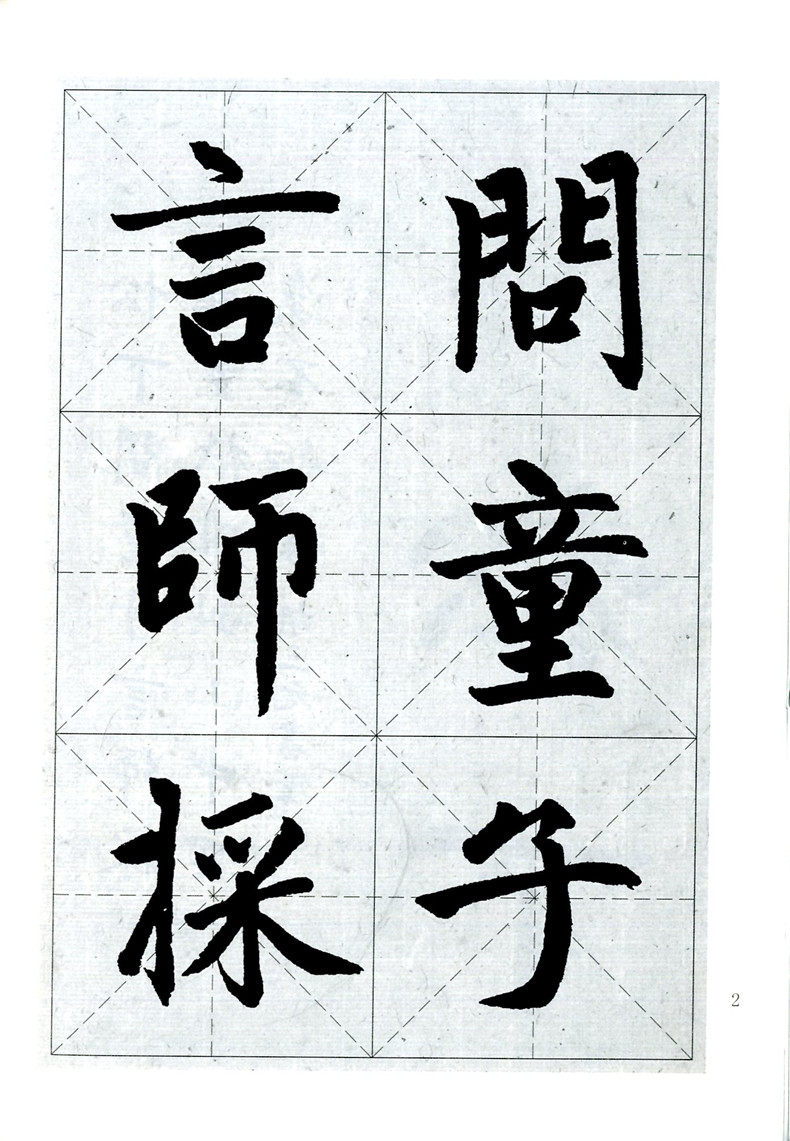 問童子
言師採
2